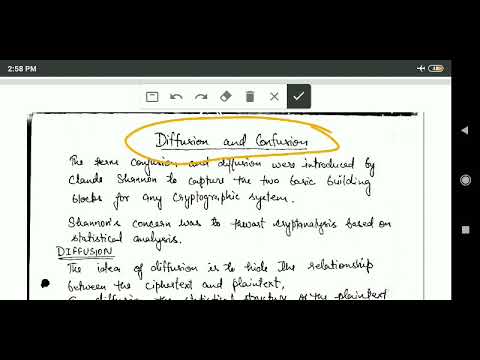 2:58 PM
Diffusion and Confusion
The term confusion and diffusion were introduced by
Claude Shannon to capture the two basic building
blocks for any cryptographic system.
Shannon's concern was to thwart cryptanalysis based on
statistical analysis.
DIFFUSION
The idea of diffusion is to hide the relationship
between the ciphertext and plaintext,
diffusion, the statistical structure of the plaintext